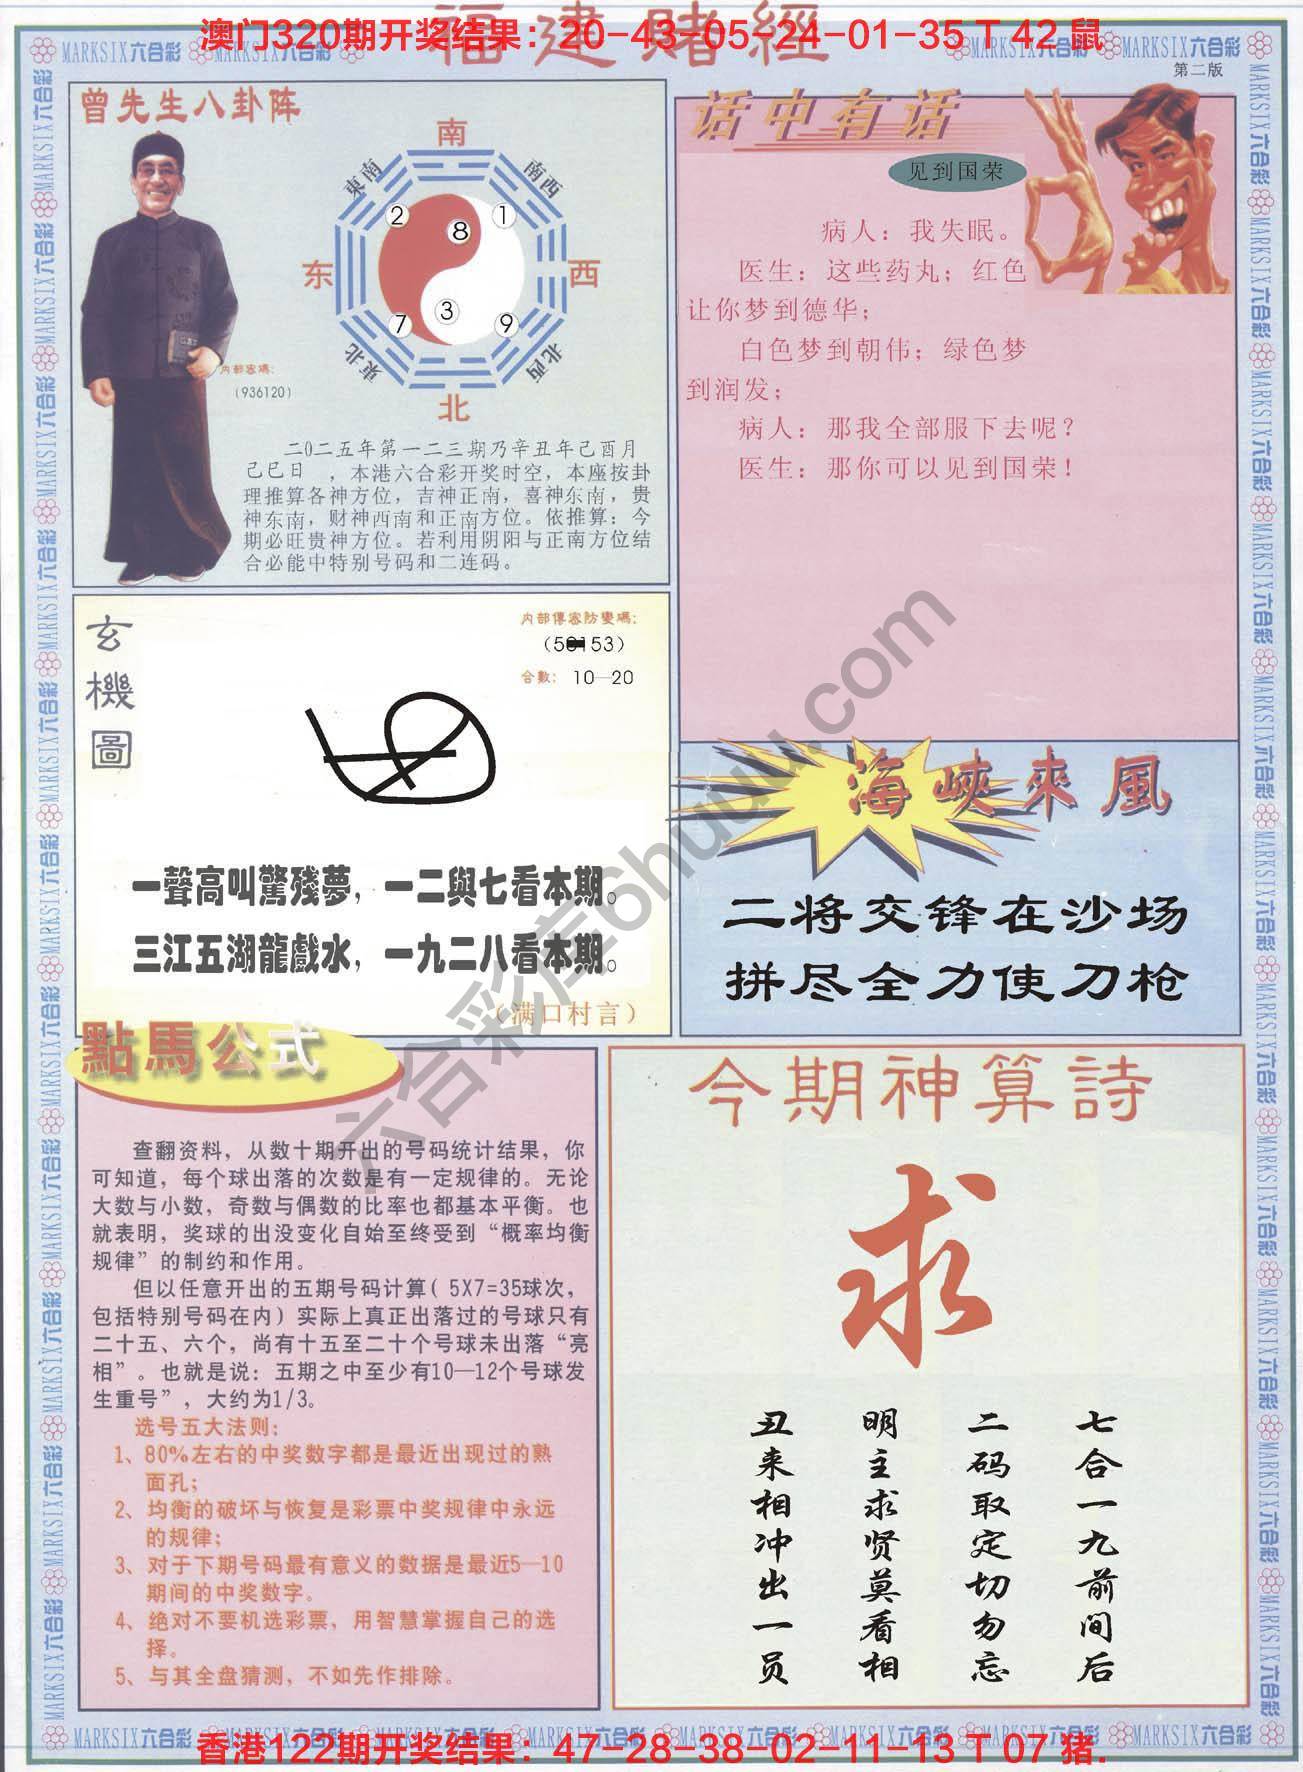 福建賭經
澳门320期开奖结果：20-43-05-24-01-35 T 42 鼠
MARKSIX六合彩
第二版
曾先生八卦阵
南
東南
南西
2
1
8
东
西
3
7
9
東北
北西
北
内部密碼：
（936120）
二0二五年第一二三期乃辛丑年己酉月
己巳日 ，本港六合彩开奖时空，本座按卦
理推算各神方位，吉神正南，喜神东南，贵
神东南，财神西南和正南方位。依推算：今
期必旺贵神方位。若利用阴阳与正南方位结
合必能中特别号码和二连码。
话中有话
见到国荣
病人：我失眠。
医生：这些药丸；红色
让你梦到德华；
白色梦到朝伟；绿色梦
到润发；
病人：那我全部服下去呢？
医生：那你可以见到国荣！
玄機圖
内部傳密防變碼：
合數： 10—20
一聲高叫驚殘夢，一二與七看本期。
三江五湖龍戲水，一九二八看本期。
（满口村言）
海峽來風
二将交锋在沙场
拼尽全力使刀枪
點馬公式
查翻资料，从数十期开出的号码统计结果，你
可知道，每个球出落的次数是有一定规律的。无论
大数与小数，奇数与偶数的比率也都基本平衡。也
就表明，奖球的出没变化自始至终受到“概率均衡
规律”的制约和作用。
但以任意开出的五期号码计算（5X7=35球次，
包括特别号码在内）实际上真正出落过的号球只有
二十五、六个，尚有十五至二十个号球未出落“亮
相”。也就是说：五期之中至少有10—12个号球发
生重号”，大约为1/3。
选号五大法则：
1、80%左右的中奖数字都是最近出现过的熟
面孔；
2、均衡的破坏与恢复是彩票中奖规律中永远
的规律；
3、对于下期号码最有意义的数据是最近5—10
期间的中奖数字。
4、绝对不要机选彩票，用智慧掌握自己的选
择。
5、与其全盘猜测，不如先作排除。
今期神算詩
求
七合一九前间后
二码取定切勿忘
明主求贤莫看相
丑来相冲出一员
六合彩库6huuu.com
香港122期开奖结果：47-28-38-02-11-13 T 07 猪.